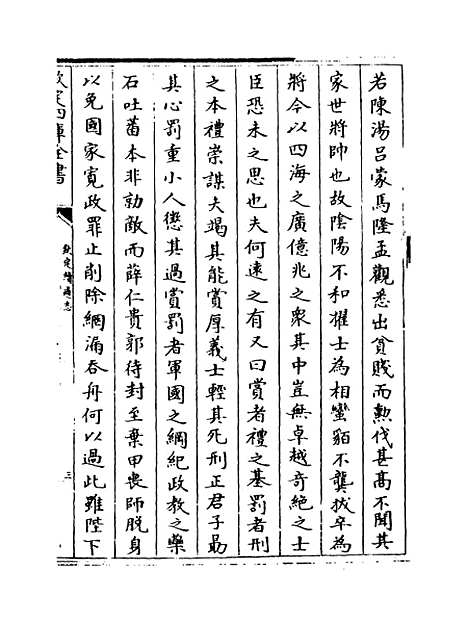 若陳湯呂蒙馬隆孟觀悉出貧賤而勲伐甚髙不聞其
家世將帥也故陰陽不和擢士為相蠻貊不龔拔卒為
將今以四海之廣億兆之衆其中豈無卓越奇絶之士
臣恐未之思也夫何逺之有又曰賞者禮之基罰者刑
之本禮崇謀夫竭其能賞厚義士輕其死刑正君子勗
其心罰重小人懲其過賞罰者軍國之綱紀政教之藥
石吐蕃本非勍敵而薛仁貴郭待封至棄甲喪師脱身
以免國家寛政罪止削除網漏吞舟何以過此雖陛下
欽定四庫全書
欽定續通志
三